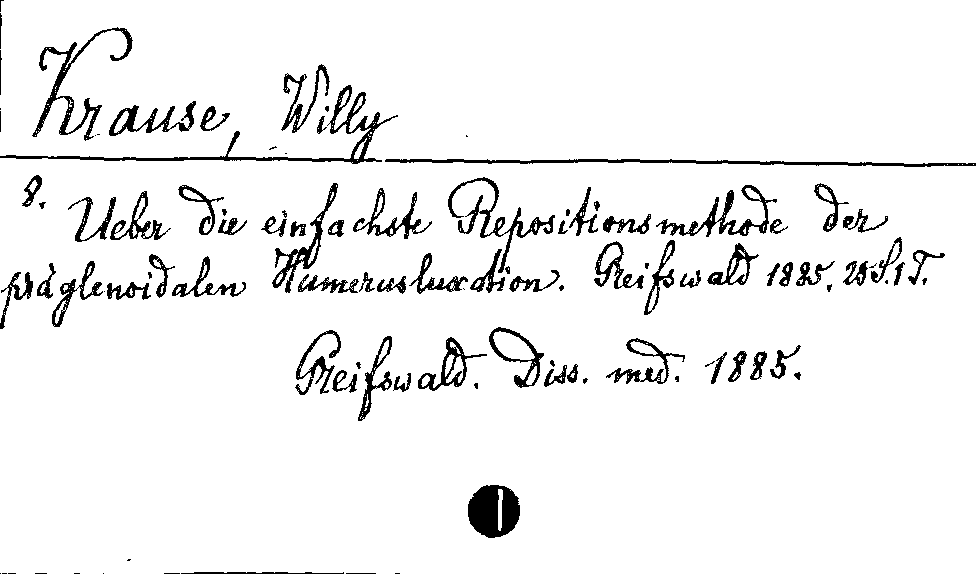 Krause, Willy
8. Ueber die einfachste Repositionsmethode der
präglenoidalen Humerusluxation. Greifswald 1885. 28 S. 1 T.
Greifswald. Diss. med. 1885.